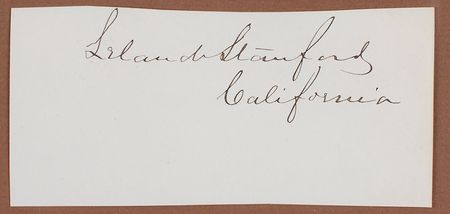 Leland Stanford
California